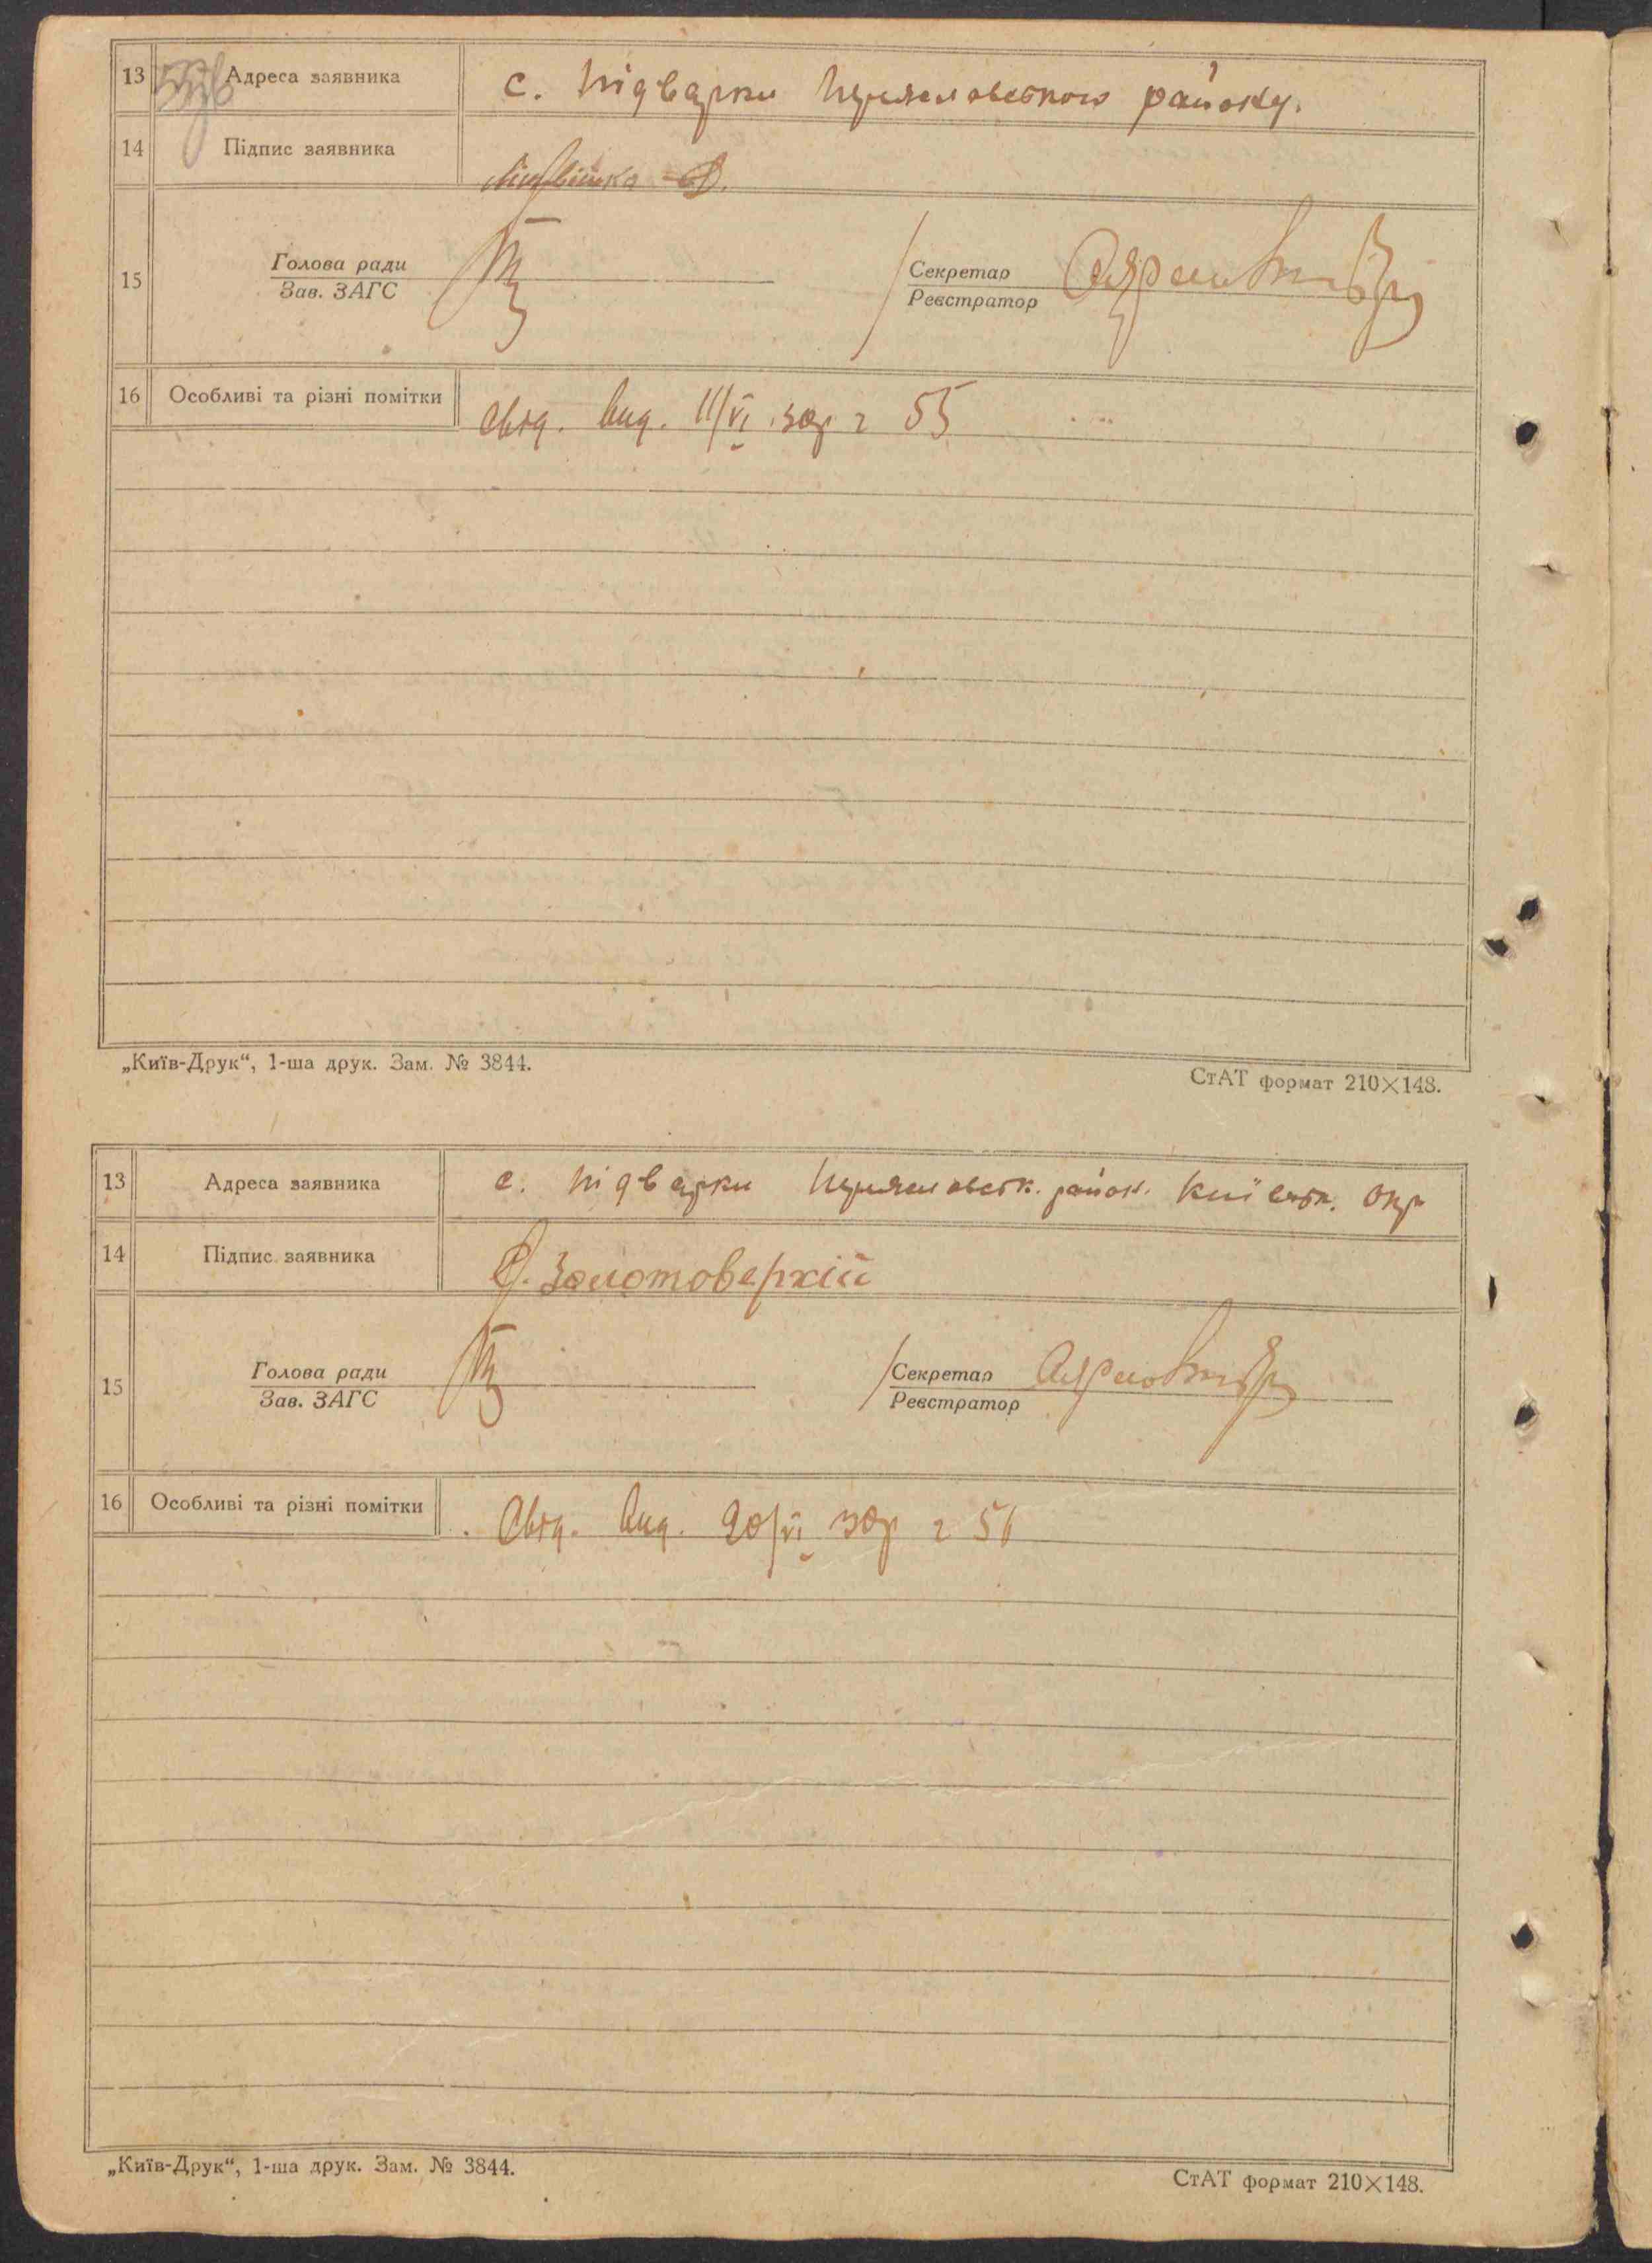 13 Адреса заявника с. Підварки Переяславського району.
14 Підпис заявника Литвинко
15 Голова ради Секретар
Зав. ЗАГС Реєстратор
16 Особливі та різні помітки Свід. вид. 11/VI 30р. 55
„Київ-Друк“, 1-ша друк. Зам. № 3844.
СтАТ формат 210×148.
13 Адреса заявника с. Підварки Переяславськ. район. Київськ. Окр
14 Підпис заявника Золотоверхій
15 Голова ради Секретар
Зав. ЗАГС Реєстратор
16 Особливі та різні помітки Свід. вид. 20/VI 30р
„Київ-Друк“, 1-ша друк. Зам. № 3844.
СтАТ формат 210×148.